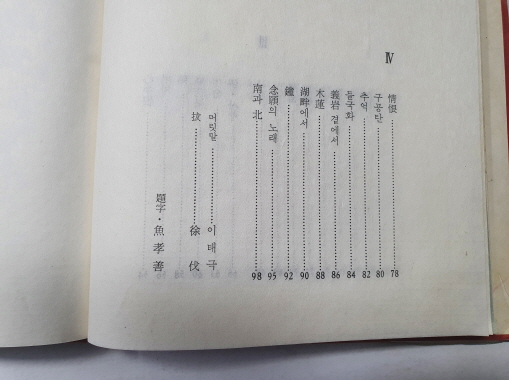 Ⅳ
情恨 78
구공탄 80
추억 82
들국화 84
義岩 곁에서 86
木蓮 88
湖畔에서 90
鐘 92
念願의 노래 95
南과 北 98
머릿말 이태극
跋 徐伐
題字・魚孝善